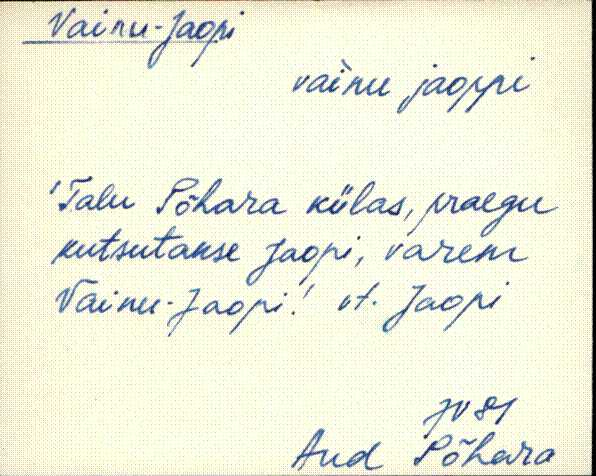 Vainu-Jaopi
vàinu jaoppi
'Talu Põhara külas, praegu
kutsutakse Jaopi, varem
Vainu-Jaopi.' vt. Jaopi
JV 81
Aud Põhara